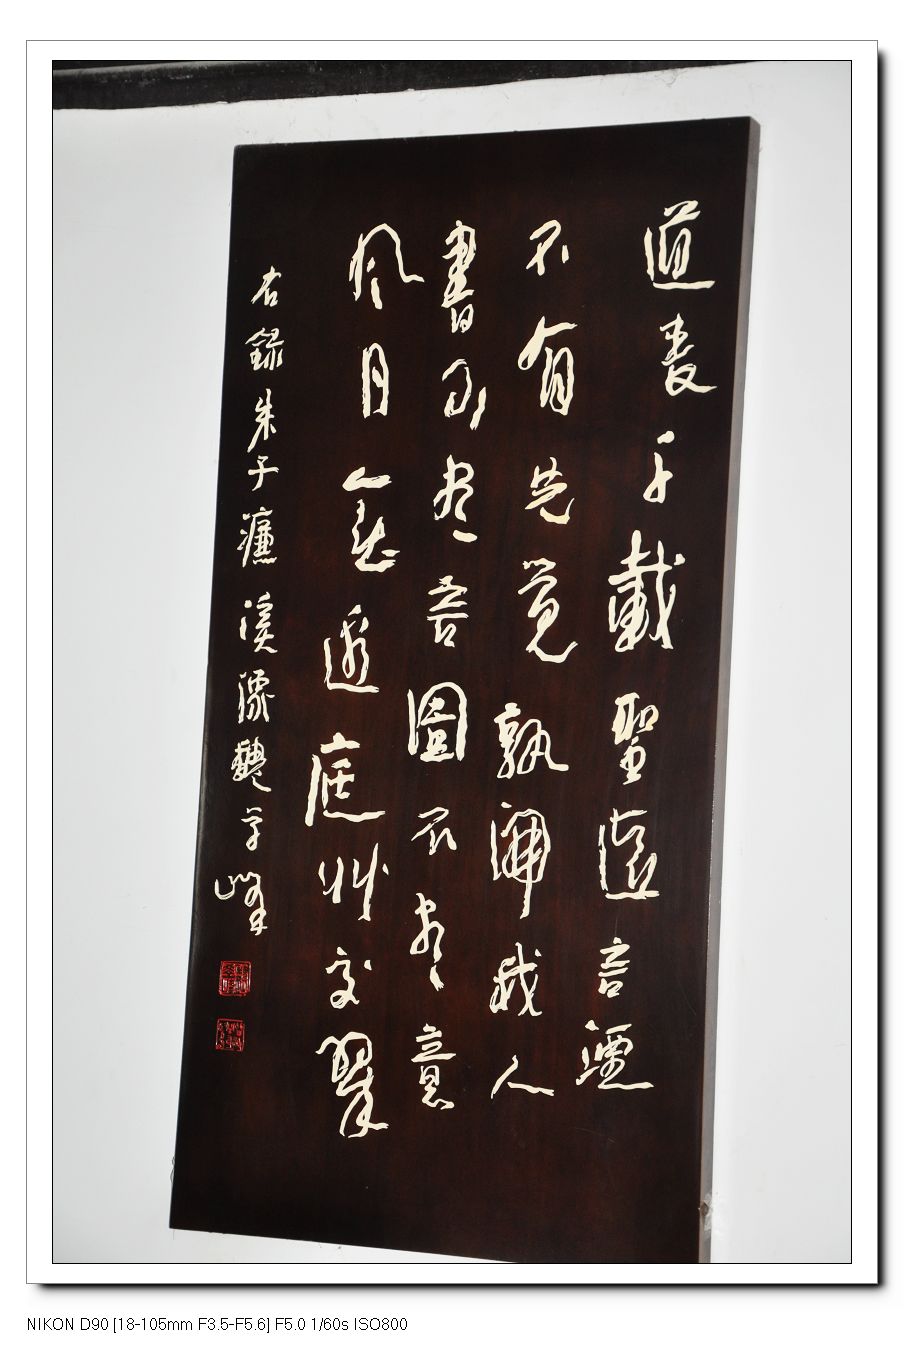 道喪千載聖遠言湮
不有先覺孰開我人
書不盡言圖不盡意
風月無邊庭艸交翠
右錄朱子濂溪像
NIKON D90 [18-105mm F3.5-F5.6] F5.0 1/60s ISO800